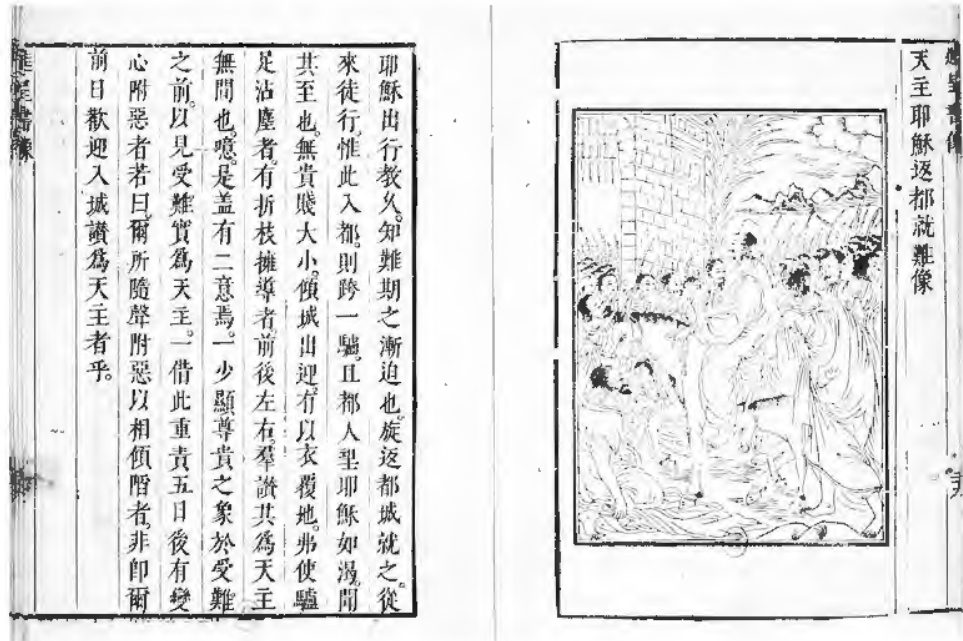 進呈書像
天主耶穌返都就難像
耶穌出行教久。知難期之漸迫也。旋返都城就之。從
來徒行。惟此入都。則跨一驢。且都人朢耶穌如渴。聞
其至也。無貴賤大小。傾城出迎。有以衣覆地。弗使驢
足沾塵者。有折枝擁導者前後左右。羣讚其爲天主
無間也。噫。是盖有二意焉。一少顯尊貴之象於受難
之前。以見受難實爲天主。一借此重責五日後有變
心附惡者若曰。爾所隨聲附惡以相傾陷者。非卽爾
前日歡迎入城讚爲天王者乎。
進呈書像